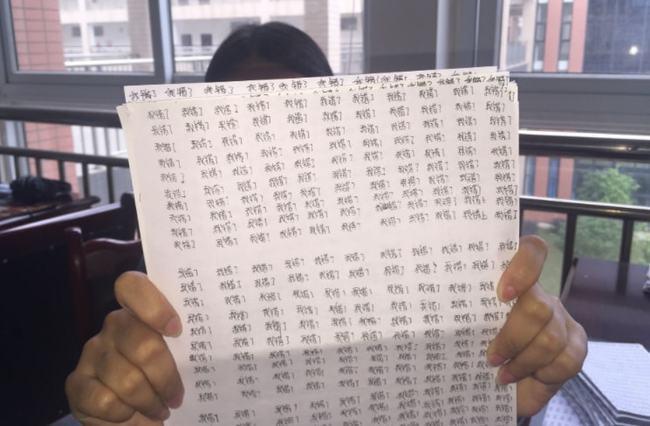 我错了 我错了 我错了 我错了 我错了 我错了 我错了 我错了 我错了 我错了 我错了
我错了 我错了 我错了 我错了 我错了 我错了 我错了 我错了 我错了 我错了 我错了
我错了 我错了 我错了 我错了 我错了 我错了 我错了 我错了 我错了 我错了 我错了
我错了 我错了 我错了 我错了 我错了 我错了 我错了 我错了 我错了 我错了 我错了
我错了 我错了 我错了 我错了 我错了 我错了 我错了 我错了 我错了 我错了 我错了
我错了 我错了 我错了 我错了 我错了 我错了 我错了 我错了 我错了 我错了 我错了
我错了 我错了 我错了 我错了 我错了 我错了 我错了 我错了 我错了 我错了 我错了
我错了 我错了 我错了 我错了 我错了 我错了 我错了 我错了 我错了 我错了 我错了
我错了 我错了 我错了 我错了 我错了 我错了 我错了 我错了 我错了 我错了 我错了
我错了 我错了 我错了 我错了 我错了 我错了 我错了 我错了 我错了 我错了 我错了
我错了 我错了 我错了
我错了 我错了 我错了 我错了 我错了 我错了 我错了 我错了 我错了 我错了
我错了 我错了 我错了 我错了 我错了 我错了 我错了 我错了 我错了 我错了
我错了 我错了 我错了 我错了 我错了 我错了 我错了 我错了 我错了 我错了
我错了 我错了 我错了 我错了 我错了 我错了 我错了 我错了 我错了 我错了
我错了 我错了 我错了 我错了 我错了 我错了 我错了 我错了 我错了 我错了
我错了 我错了 我错了 我错了 我错了 我错了 我错了 我错了 我错了 我错了
我错了 我错了 我错了 我错了 我错了 我错了 我错了 我错了 我错了 我错了
我错了 我错了 我错了 我错了 我错了 我错了 我错了 我错了 我错了 我错了
我错了 我错了 我错了 我错了 我错了 我错了 我错了 我错了 我错了 我错了
我错了 我错了 我错了 我错了 我错了 我错了 我错了 我错了 我错了 我错了
我错了 我错了 我错了 我错了 我错了 我错了 我错了 我错了 我错了 我错了